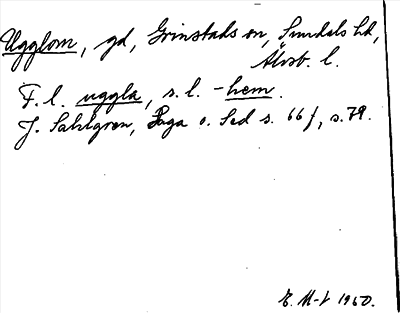 Ugglom, gd, Grinstads sn, Sundals hd,
Älvsb. l.
F. l. uggla, s. l. -hem.
J. Sahlgren, Saga o. Sed s. 66 f, s. 79.
E. M-t 1950.